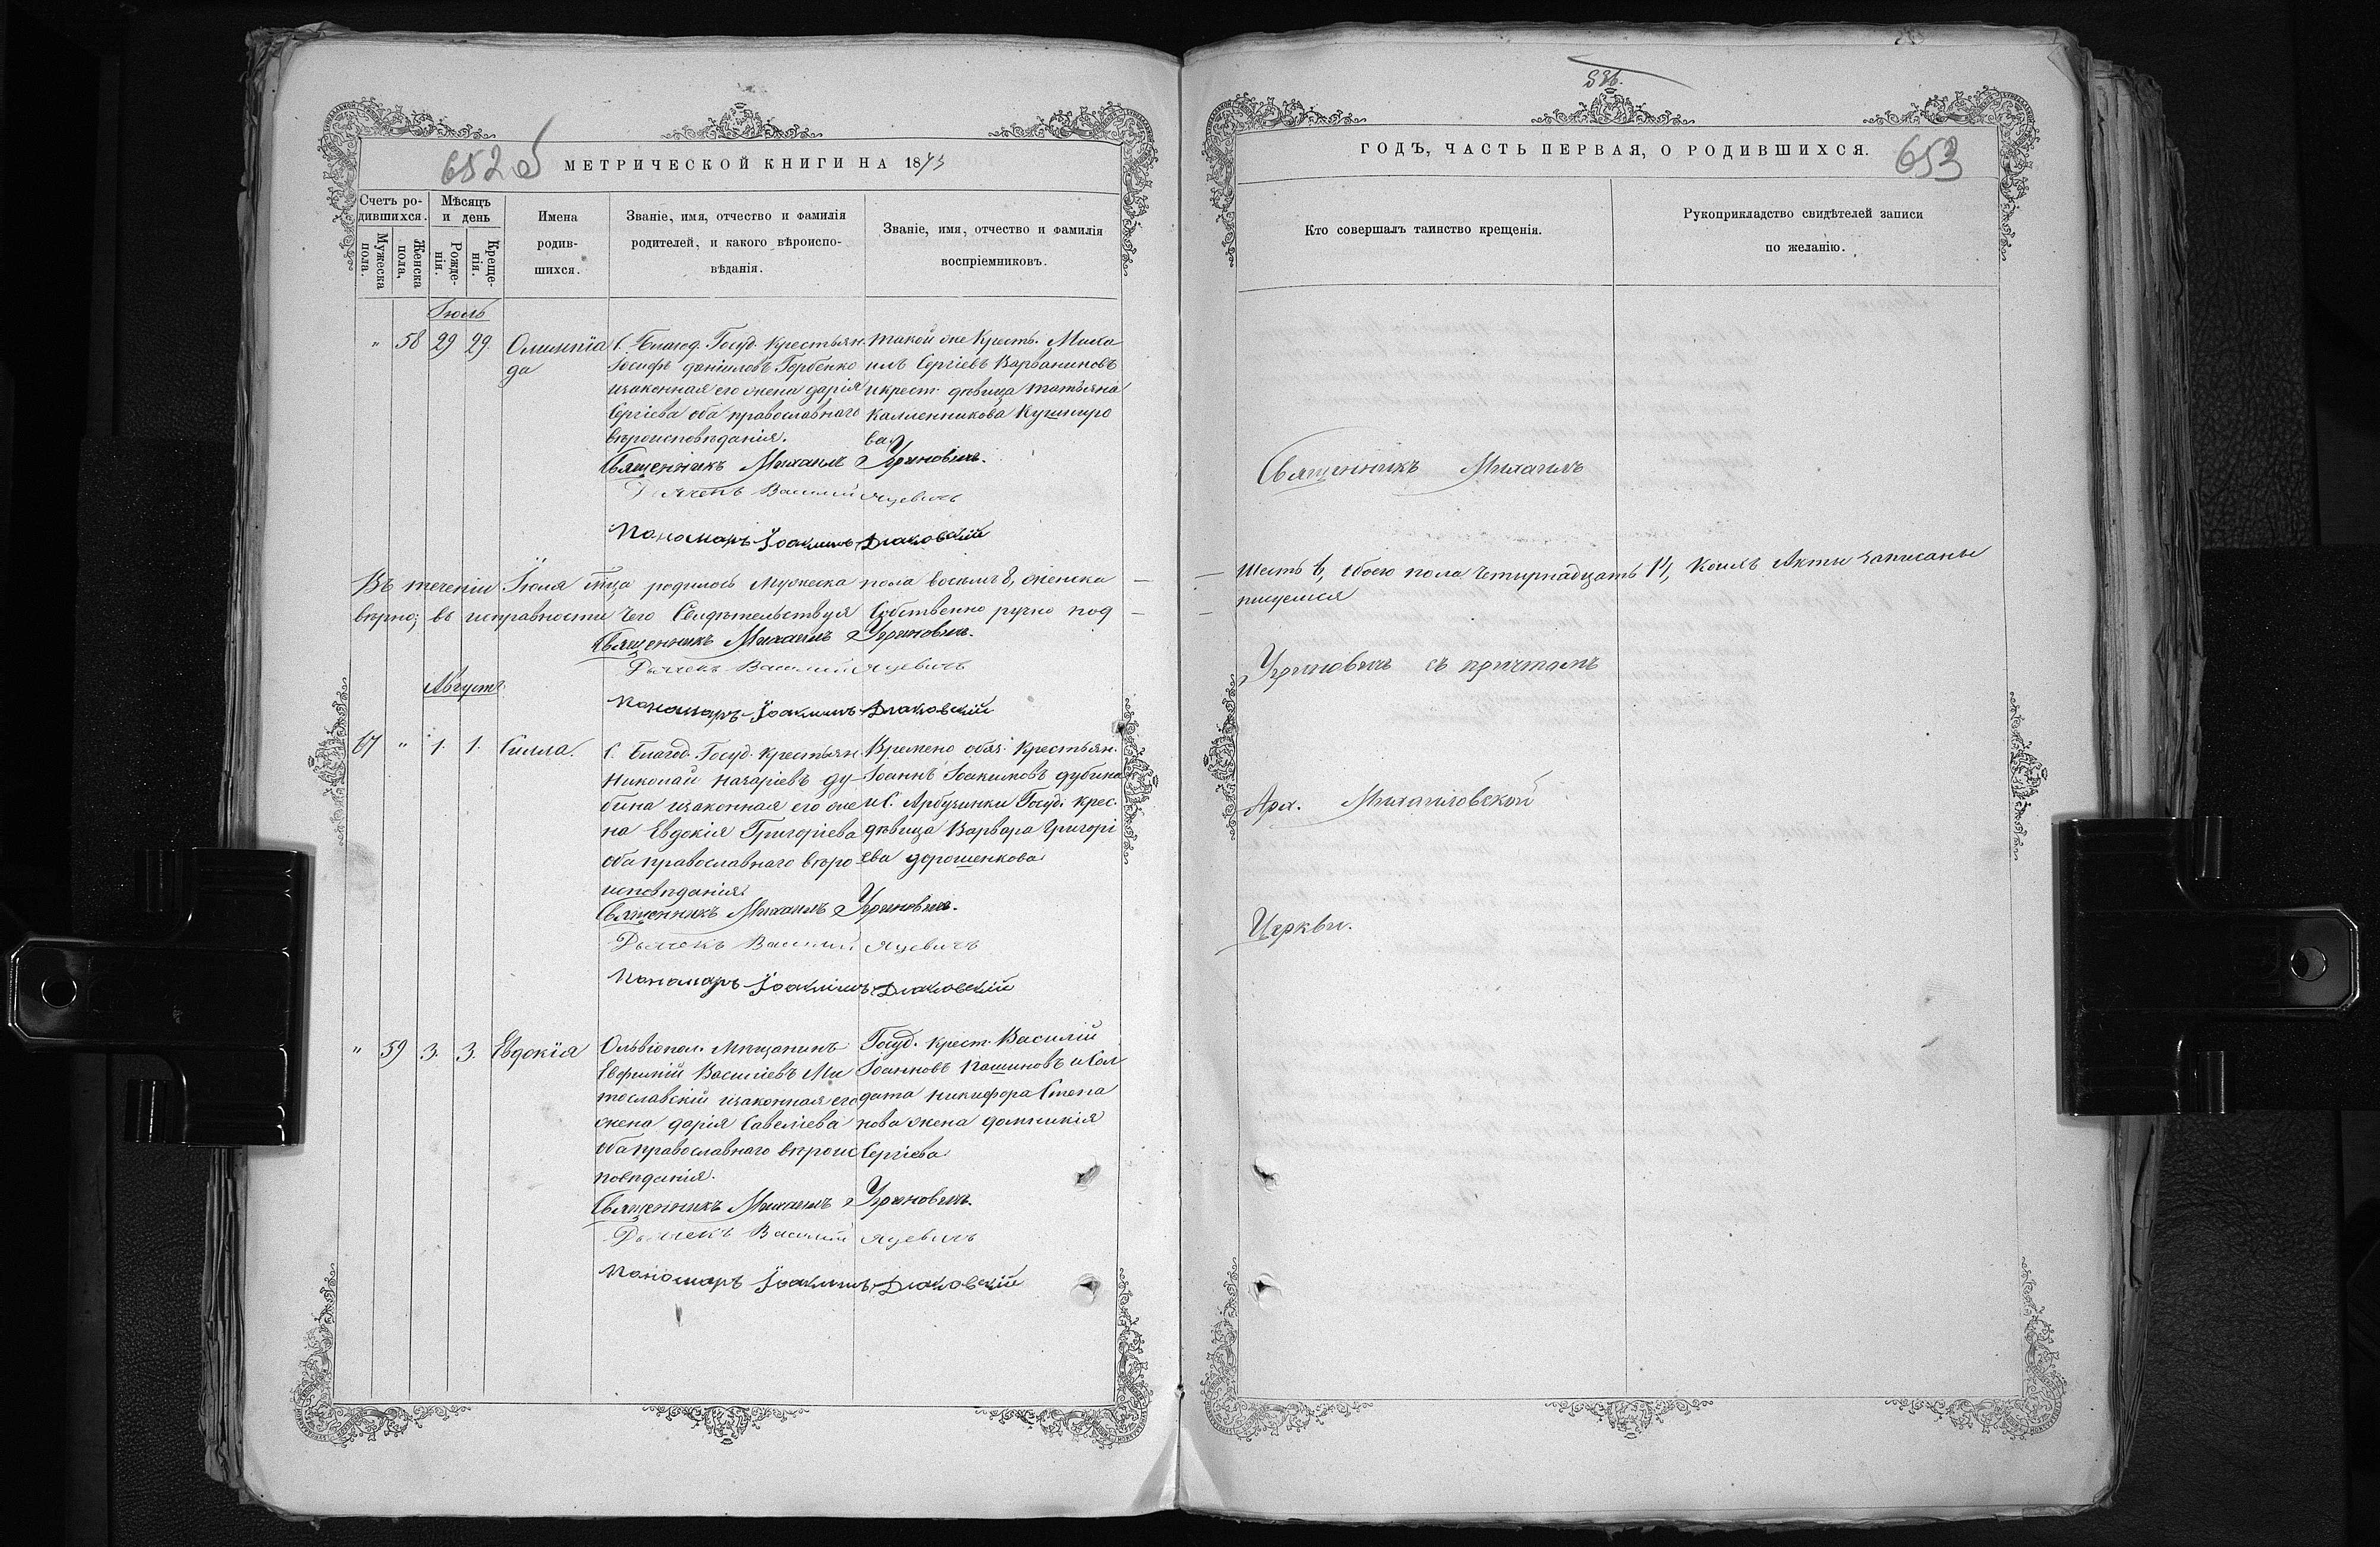 652 об
МЕТРИЧЕСКОЙ КНИГИ НА 1873
Счетъ ро-
дившихся.
Мужеска
пола.
Женска
пола.
Мѣсяцъ
и день
Рожде-
нія.
Креще-
нія.
Имена
родив-
шихся.
Званіе, имя, отчество и фамилія
родителей, и какого вѣроиспо-
вѣданія.
Званіе, имя, отчество и фамилія
воспріемниковъ.
Іюль
" 58 29 29. Олимпіа
да
С. Благод. Госуд. Крестьян.
Іосифъ Даніиловъ Горбенко
изаконная его жена Дарія
Сергіева оба православнаго
вѣроисповѣданія.
такой же Кресть. Миха
илъ Сергіевъ Варваниновъ
и крест. дѣвица Татьяна
Калленникова
ва
Священникъ Михаилъ Угриновичъ.
Дьячекъ Василий Яцевичъ
Пономарь Іоакимъ Длаковскій
Въ теченіи Іюля м-ца родилось Мужеска пола восемь 8, женска
вѣрно; въ исправности чего Свидѣтельствуя Собственно ручно под
Священникъ Михаилъ Угриновичъ.
Дьячекъ Василий Яцевичъ
Пономарь Іоакимъ Длаковскій
Августъ
67 " 1. 1. Силла.
С. Благод. Госуд. Крестьян.
Николай Назаріевъ Ду-
бина изаконная его же
на Евдокія Григоріева
оба православнаго вѣро
исповѣданія.
Времено обяз. Крестьян.
Іоаннъ Іоакимовъ Дубина
и С. Арбузинки Госуд. крес.
дѣвица Варвара Григорі
ева Дорошенкова
Священникъ Михаилъ Угриновичъ.
Дьячекъ Василий Яцевичъ
Пономарь Іоакимъ Длаковскій
" 59 3. 3. Евдокія
Ольвіопол. Мѣщанинъ
Евфимій Василіевъ Ми
тославскій изаконная его
жена Дарія Савеліева
оба православнаго вѣроис
повѣданія.
Госуд. Крест. Василій
Іоанновъ Пашиновъ и Сол
дата Никифора Степа
нова жена Домникія
Сергіева
Священникъ Михаилъ Угриновичъ.
Дьячекъ Василий Яцевичъ
Пономарь Іоакимъ Длаковскій
653
ГОДЪ, ЧАСТЬ ПЕРВАЯ, О РОДИВШИХСЯ.
Кто совершалъ таинство крещенія.
Рукоприкладство свидѣтелей записи
по желанію.
Священникъ Михаилъ
шесть 6, обоего пола четырнадцать 14, Коихъ Акты записаны
писуемся
Угриновичъ съ причтомъ
Арх. Михаиловской
Церкви.